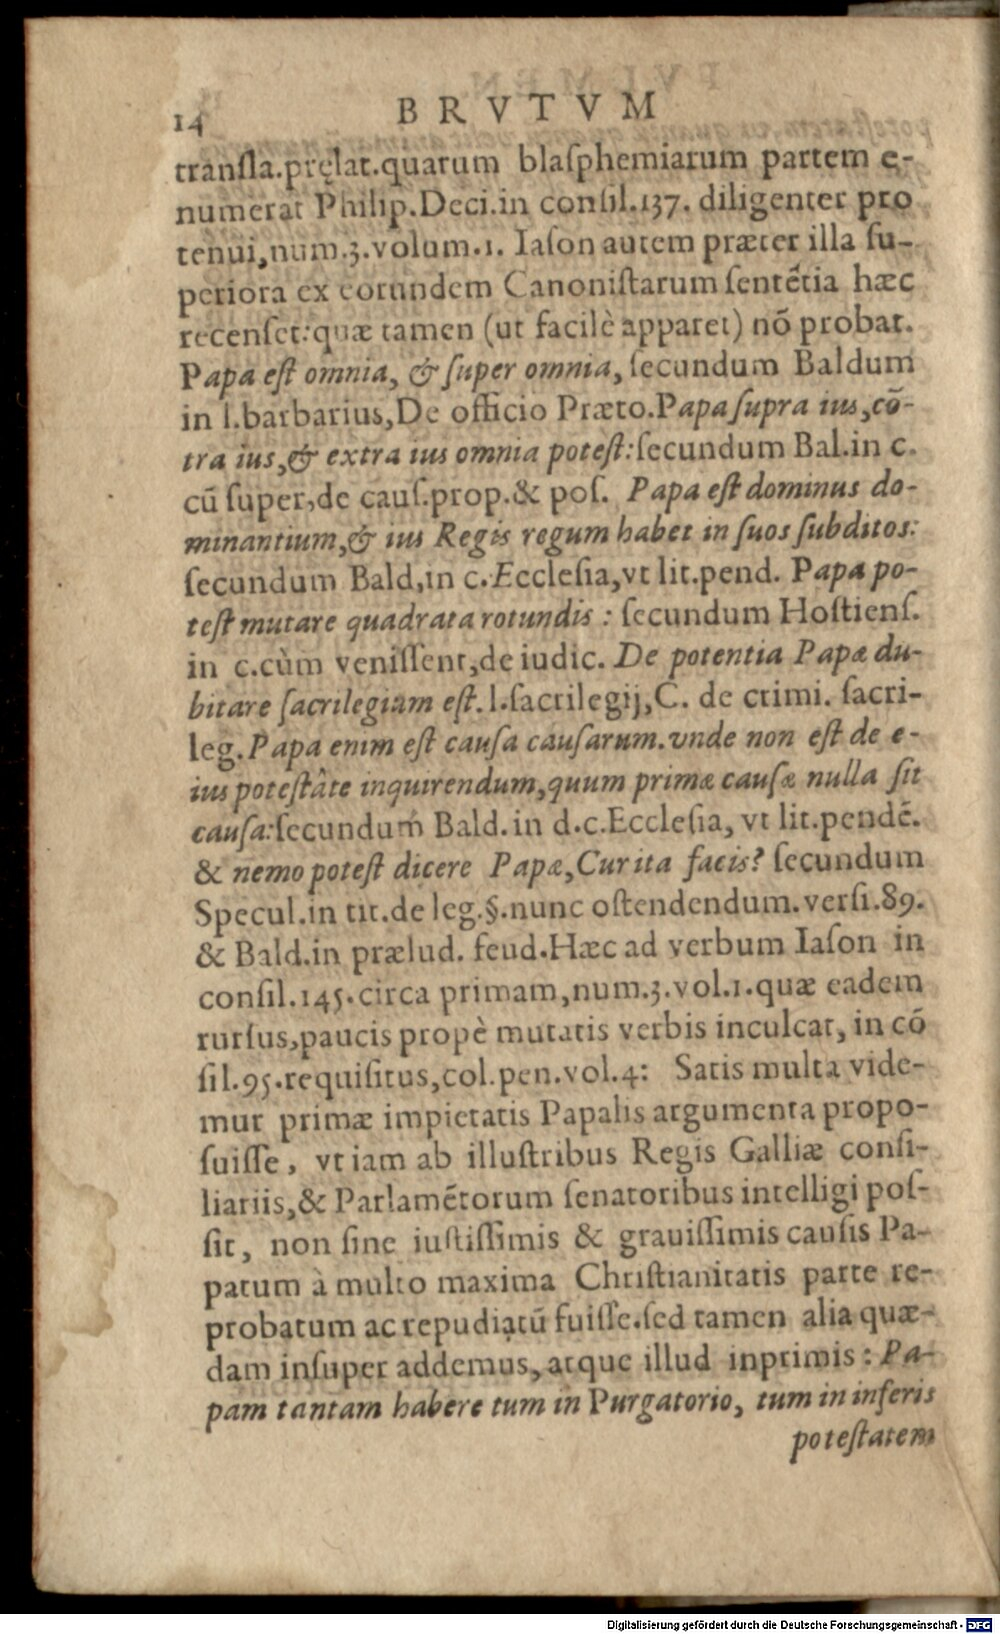 14 BRVTVM
transla.pręlat.quarum blasphemiarum partem e-
numerat Philip.Deci.in consil.137. diligenter pro
tenui,num.3.volum.1. Iason autem præter illa su-
periora ex eorundem Canonistarum sentẽtia hæc
recenset:quæ tamen (ut facilè apparet) nõ probat.
Papa est omnia, & super omnia, secundum Baldum
in l.barbarius,De officio Præto.Papa supra ius,cõ-
tra ius,& extra ius omnia potest:secundum Bal.in c.
cũ super,de caus.prop.& pos. Papa est dominus do-
minantium,& ius Regis regum habet in suos subditos:
secundum Bald,in c.Ecclesia,vt lit.pend. Papa po-
test mutare quadrata rotundis : secundum Hostiens.
in c.cùm venissent,de iudic. De potentia Papæ du-
bitare sacrilegium est.l.sacrilegij,C. de crimi. sacri-
leg.Papa enim est causa causarum.vnde non est de e-
ius potestâte inquirendum,quum primæ causæ nulla sit
causa:secundum Bald.in d.c.Ecclesia, vt lit.pendẽ.
& nemo potest dicere Papæ,Cur ita facis? secundum
Specul.in tit.de leg.§.nunc ostendendum.versi.89.
& Bald.in prælud. feud.Hæc ad verbum Iason in
consil.145.circa primam,num.3.vol.1.quæ eadem
rursus,paucis propè mutatis verbis inculcat, in cõ
sil.95.requisitus,col.pen.vol.4: Satis multa vide-
mur primæ impietatis Papalis argumenta propo-
suisse, vt iam ab illustribus Regis Galliæ consi-
liariis,& Parlamẽtorum senatoribus intelligi pos-
sit, non sine iustissimis & grauissimis causis Pa-
patum à multo maxima Christianitatis parte re-
probatum ac repudiatũ fuisse.sed tamen alia quæ-
dam insuper addemus,atque illud inprimis : Pa-
pam tantam habere tum in Purgatorio, tum in inferis
potestatem
Digitalisierung gefördert durch die Deutsche Forschungsgemeinschaft - DFG